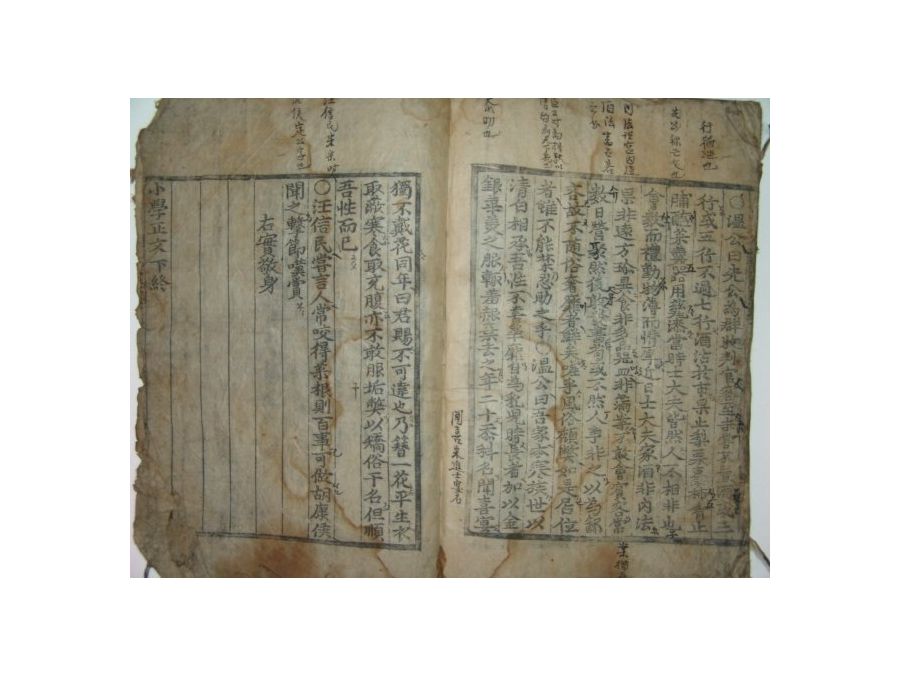 行猶巡也
○溫公曰先公爲群牧判官客至未嘗不置酒或三
行或五行不過七行酒沽於市果止梨栗棗柿肴止
脯醢菜羹器用甆漆當時士大夫皆然人不相非也
會數而禮勤物薄而情厚近日士大夫家酒非內法
果非遠方珍異食非多品器皿非滿案不敢會賓客常
數日營聚然後敢發書苟或不然人爭非之以爲鄙
吝故不隨俗奢靡者鮮矣嗟乎風俗頹弊如是居位
者雖不能禁忍助之乎 溫公曰吾家本寒族世以
清白相承吾性不喜華靡自爲乳兒時長者加以金
銀華美之服輒羞赧棄去之年二十忝科名聞喜宴
獨不戴花同年曰君賜不可違也乃簪一花平生衣
取蔽寒食取充腹亦不敢服垢獘以矯俗干名但順
吾性而已
○汪信民嘗言人常咬得菜根則百事可做胡康侯
聞之擊節嘆賞
右實敬身
小學正文下終